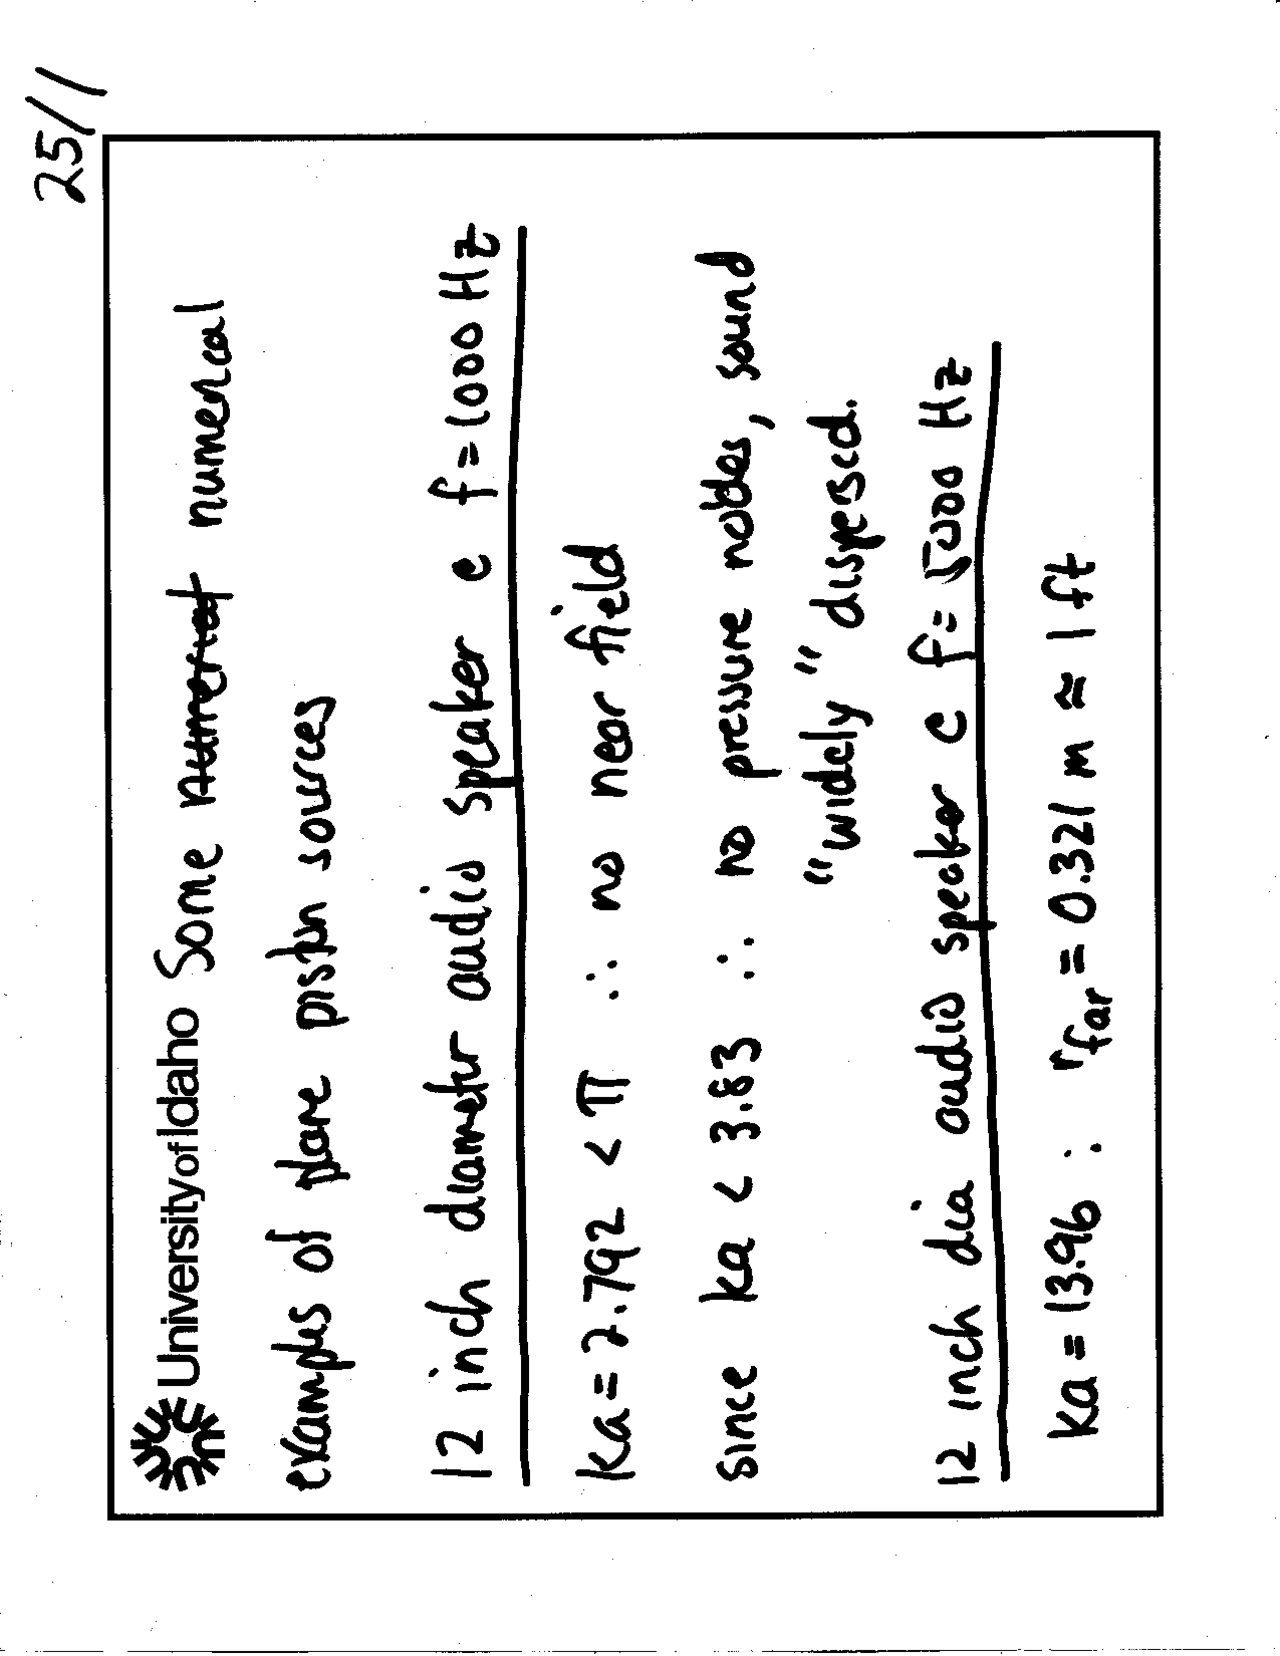 25/1
University of Idaho Some numerical numerical
examples of plane piston sources
12 inch diameter audio speaker @ f=1000 Hz
ka = 2.792 < π ∴ no near field
since ka < 3.83 ∴ no pressure nodes, sound
"widely" dispersed.
12 inch dia audio speaker @ f= 5000 Hz
ka = 13.96 : r far = 0.321 m ≈ 1 ft